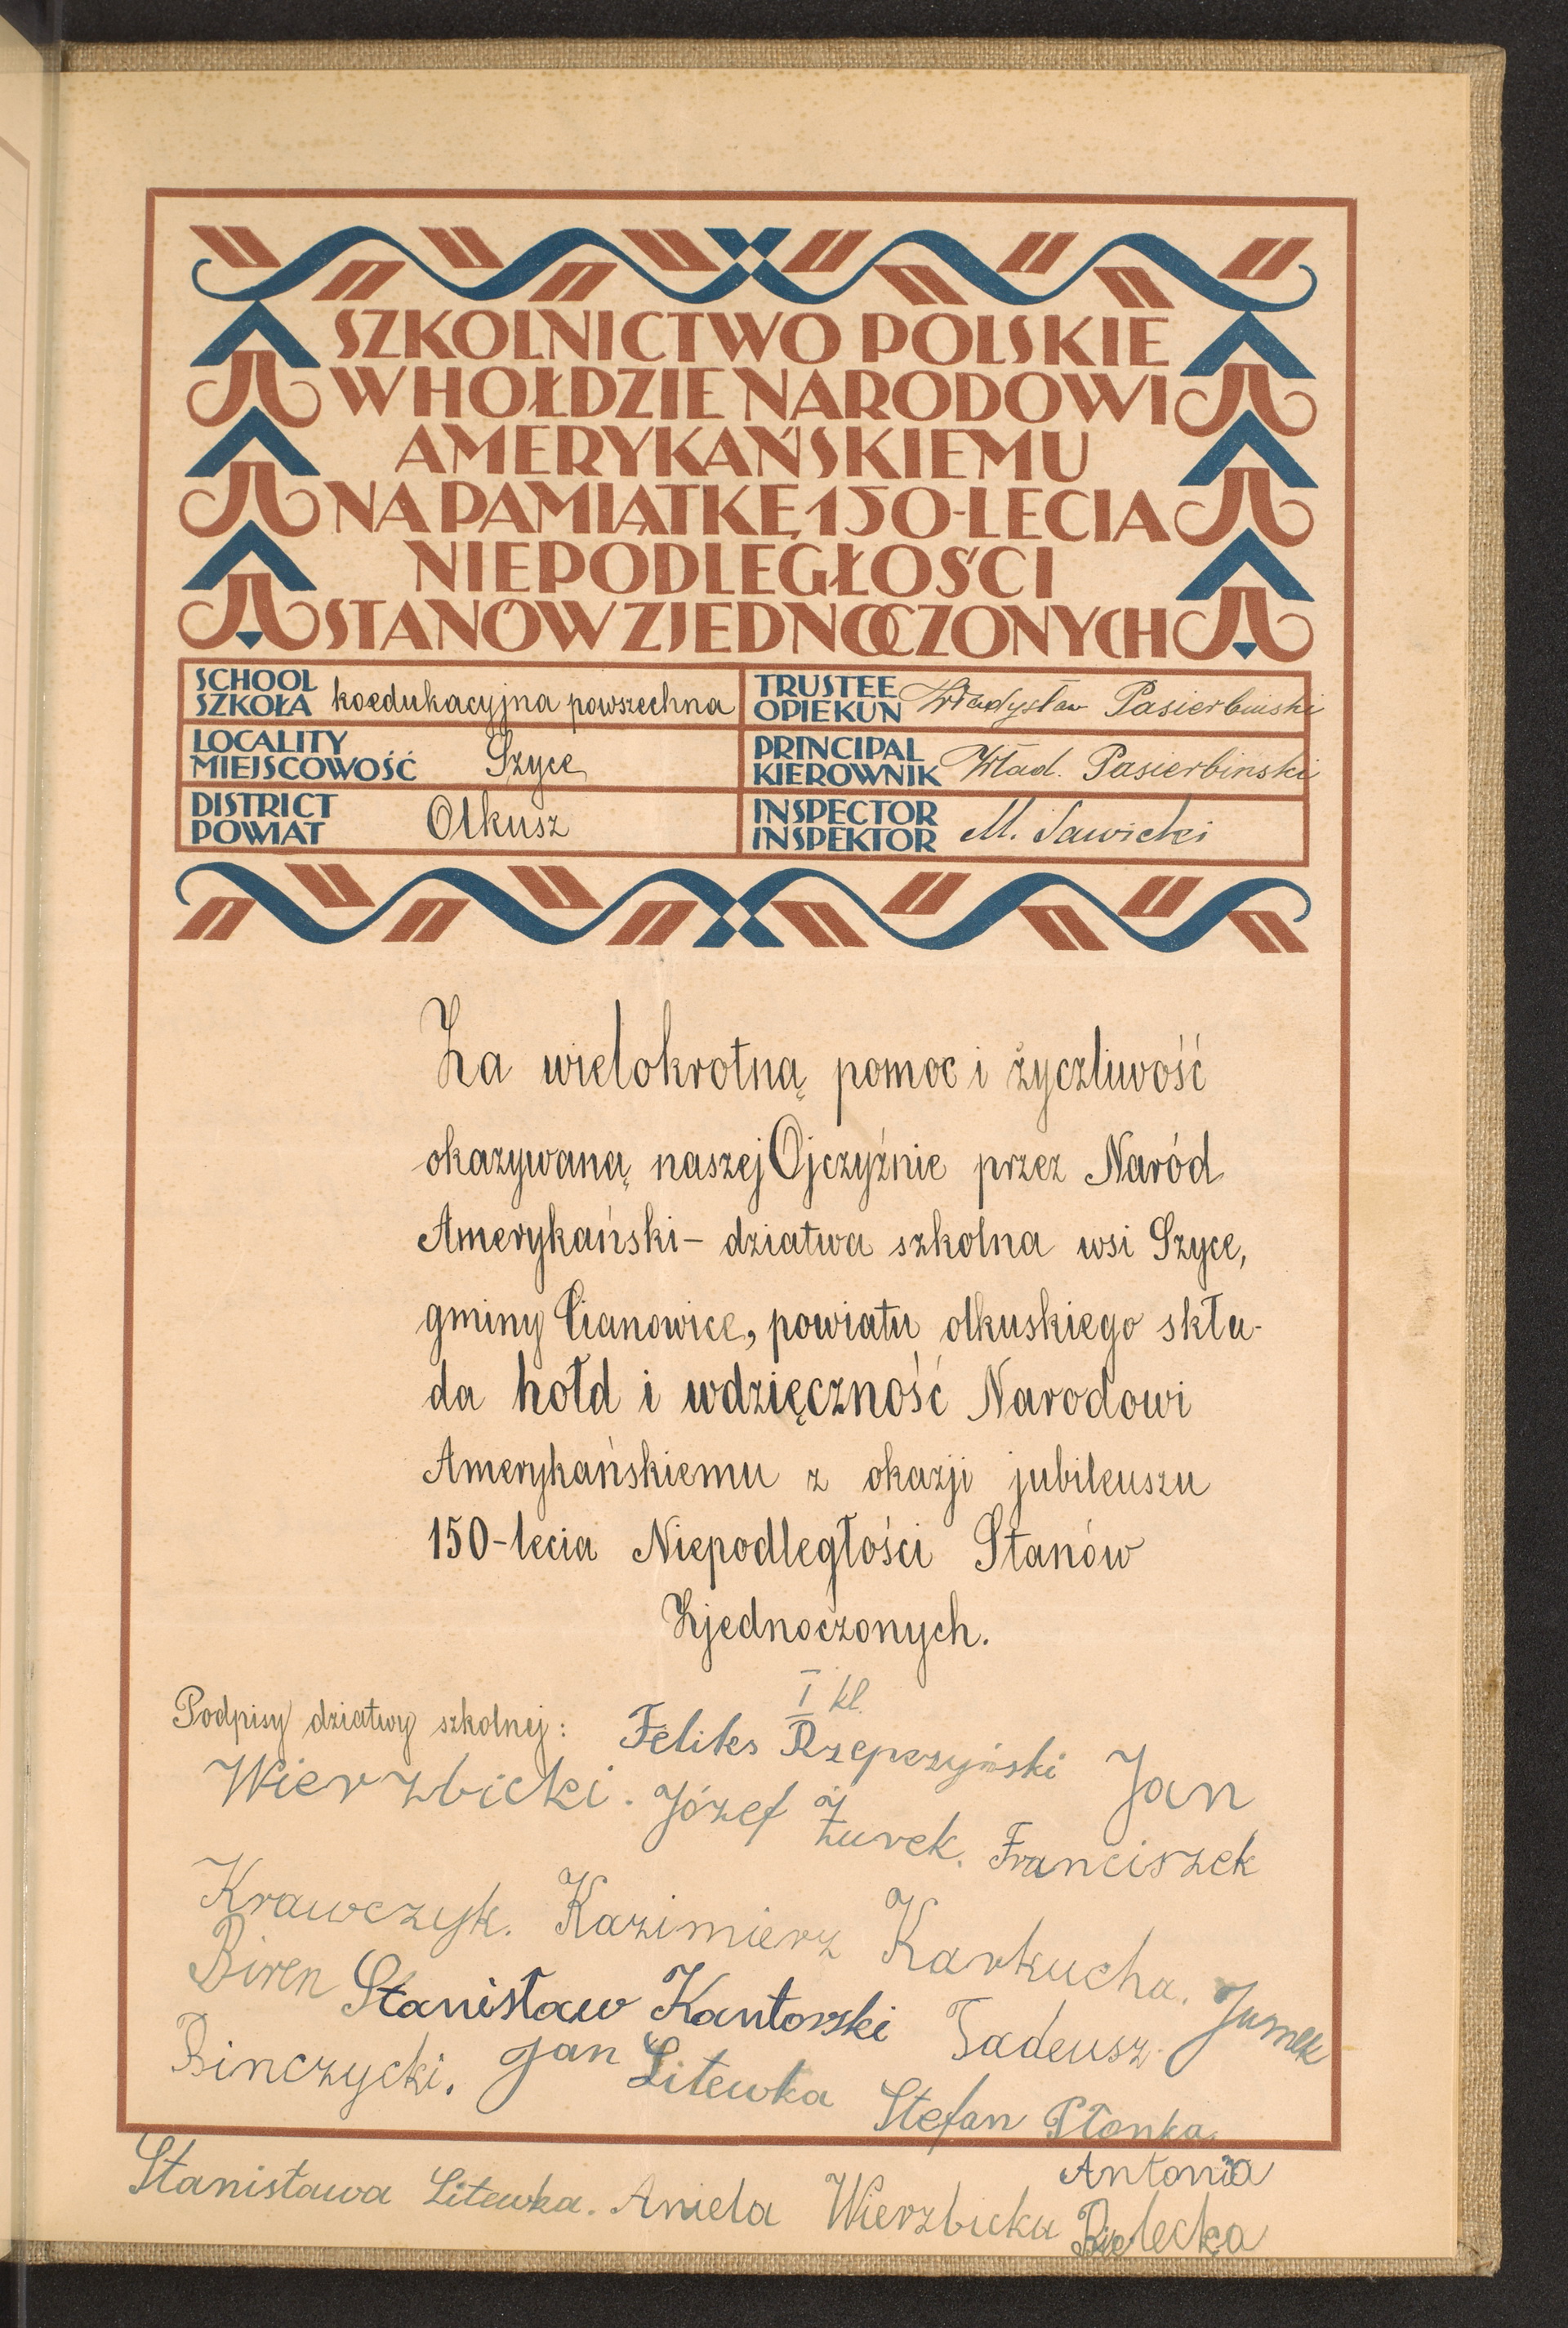 SZKOLNICTWO POLSKIE
W HOŁDZIE NARODOWI
AMERYKAŃSKIEMU
NA PAMIĄTKĘ 150-LECIA
NIEPODLEGŁOŚCI
STANÓW ZJEDNOCZONYCH
SCHOOL
SZKOŁA koedukacyjna powszechna
TRUSTEE
OPIEKUN Władysław Pasierbinski
LOCALITY
MIEJSCOWOŚĆ Szyce
PRINCIPAL
KIEROWNIK Wład. Pasierbinski
DISTRICT
POWIAT Olkusz
INSPECTOR
INSPEKTOR M. Sawicki
Za wielokrotną pomoc i życzliwość
okazywaną naszej Ojczyźnie przez Naród
Amerykański – dziatwa szkolna wsi Szyce,
gminy Cianowice, powiatu olkuskiego skła-
da hołd i wdzięczność Narodowi
Amerykańskiemu z okazji jubileuszu
150-lecia Niepodległości Stanów
Zjednoczonych.
I kl.
Podpisy dziatwy szkolnej: Feliks Rzepczyński Jan
Wierzbicki. Józef Żurek. Franciszek
Krawczyk. Kazimierz Karkucha. Jumek
Biren Stanisław Kantorski Tadeusz
Binczycki. Jan Litewka Stefan Płonka
Antonia
Stanisława Litewka. Aniela Wierzbicka Bielecka